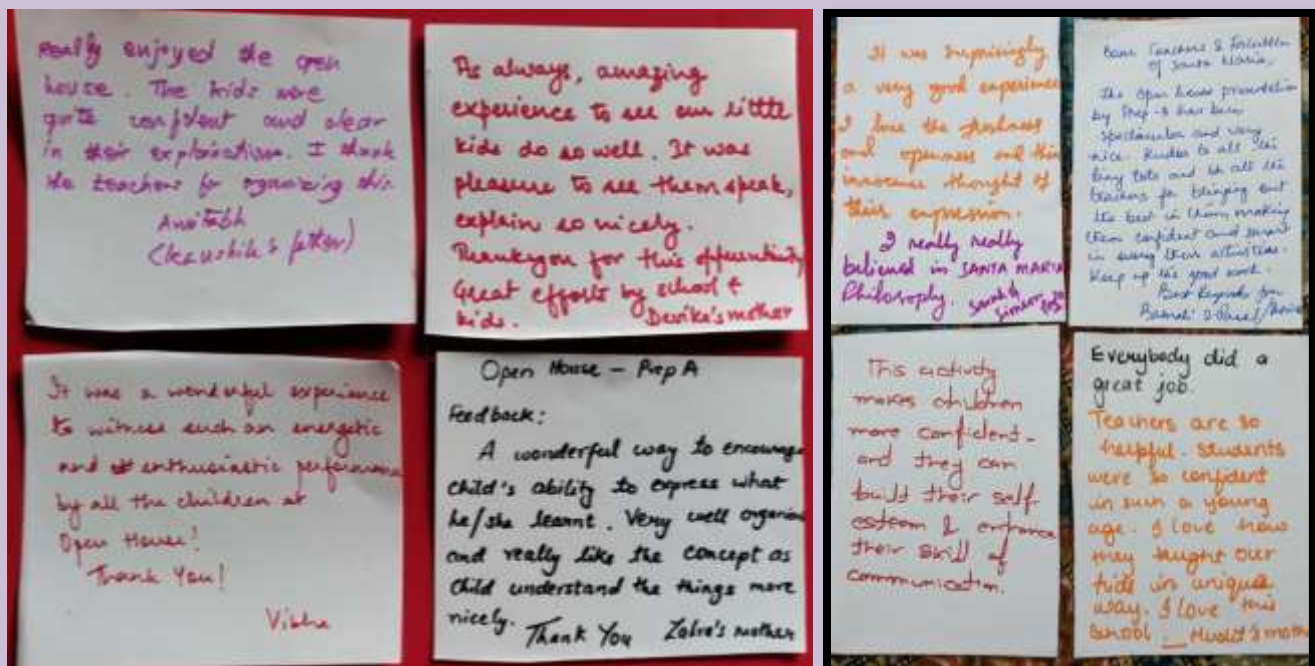 Really enjoyed the open
house. The kids were
quite confident and clear
in their explanations. I thank
the teachers for organizing this.
Amitabh
(Kaushik's father)
As always, amazing
experience to see our little
kids do so well. It was
pleasure to see them speak,
explain so nicely.
Thankyou for this opportunity
Great efforts by school &
kids. Devika's mother
It was a wonderful experience
to witness such an energetic
and enthusiastic performance
by all the children at
Open House!
Thank You!
Vibha
Open House – Prep A
Feedback:
A wonderful way to encourage
child's ability to express what
he/she learnt. Very well organise
and really like the concept as
child understand the things more
nicely. Thank You Zahra's mother
It was surprisingly
a very good experience
I love the freshness
and openness and the
innocence thought of
their expression.
I really really
believed in SANTA MARIA
Philosophy.
Teachers &
of Santa Maria,
The open house presentation
by Prep-B has been
spectacular and very
nice. Kudos to all the
tiny tots and to all the
teachers for bringing out
the best in them, making
them confident and smart
in every
Keep up the good work.
Best Regards
This activity
makes children
more confident
and they can
build their self
esteem & enhance
their skill of
communication.
Everybody did a
great job.
Teachers are so
helpful. Students
were so confident
in such a young
age. I love how
they taught our
kids in unique
way. I love this
School. Mudit's moth